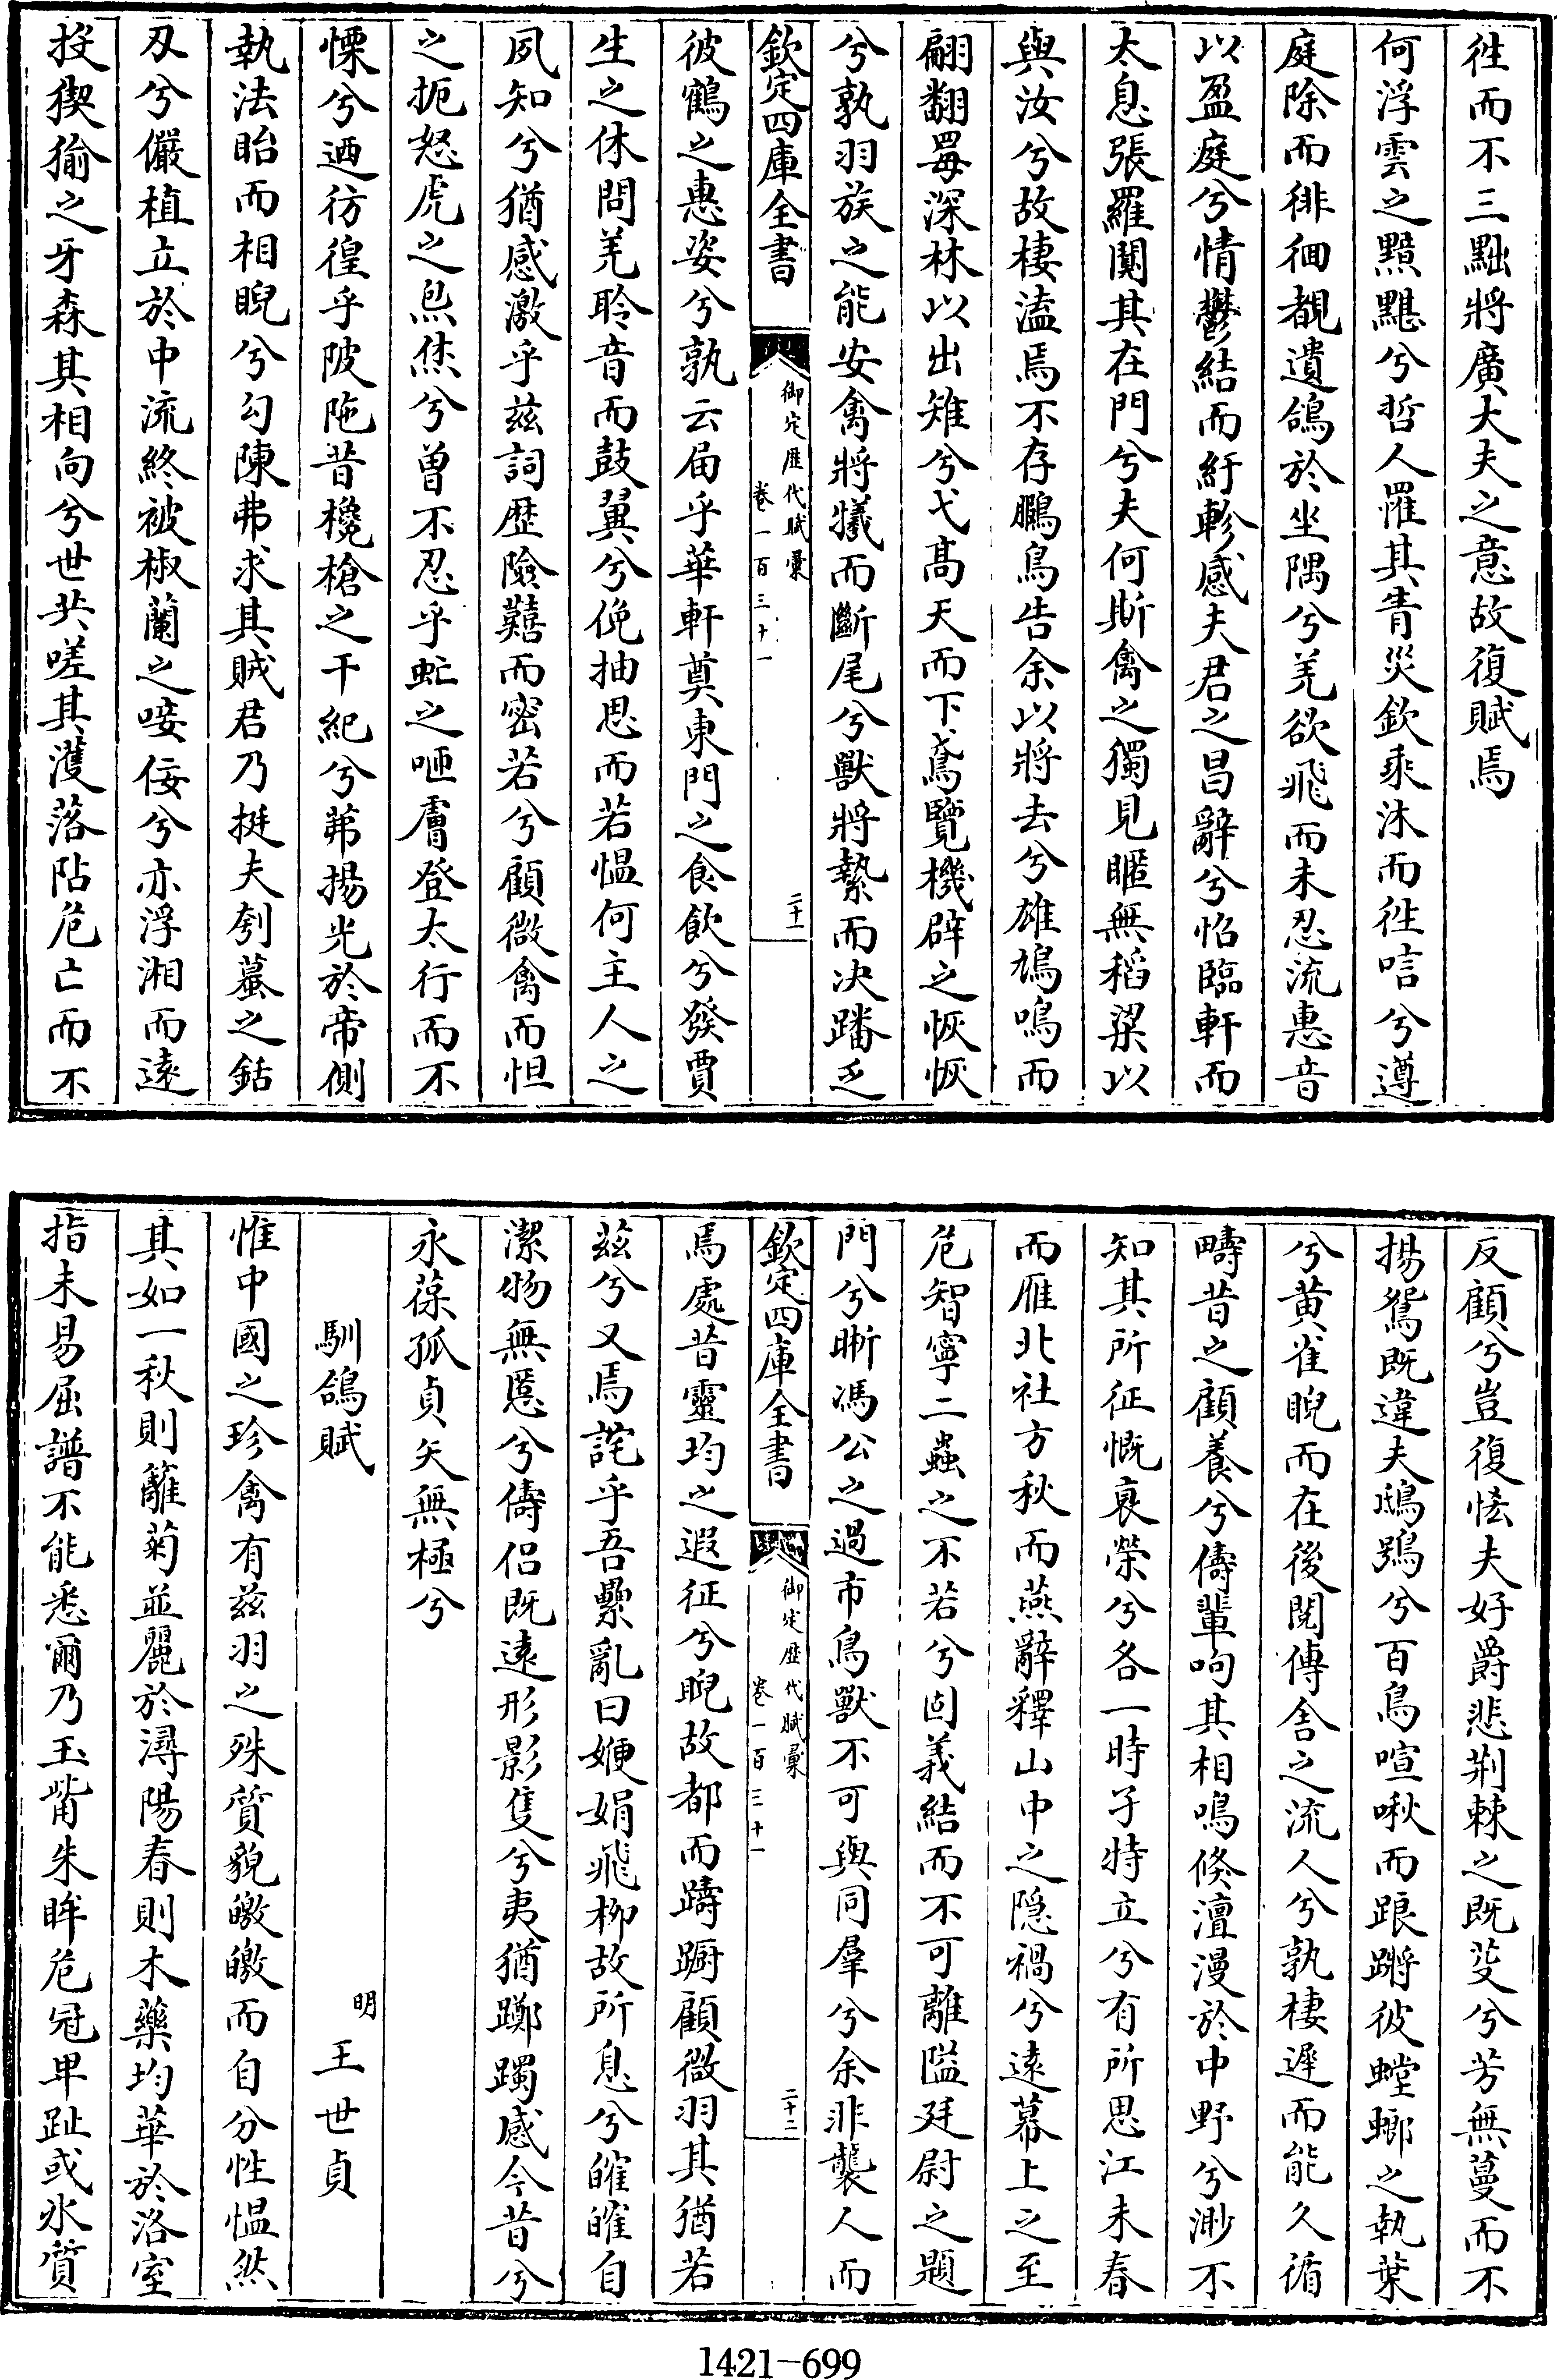 徃而不三黜將廣大夫之意故復賦焉
何浮雲之黯黮兮哲人罹其眚災欽乘沐而徃唁兮遵
庭除而徘徊覩遺鴿於坐隅兮羌欲飛而未忍流惠音
以盈庭兮情鬱結而紆軫感夫君之昌辭兮怊臨軒而
太息張羅闃其在門兮夫何斯禽之獨見睚無稻粱以
與汝兮故棲溘焉不存鵩鳥告余以將去兮雄鳩鳴而
翩翻毎深林以出雉兮弋髙天而下鳶覽機辟之恢恢
兮孰羽族之能安禽將犧而斷尾兮獸將縶而决蹯乏
欽定四庫全書
御定歴代賦彚
卷一百三十一
二十一
彼鶴之惠姿兮孰云届乎華軒奠東門之食飲兮發賈
生之休問羌聆音而鼓翼兮俛抽思而若愠何主人之
夙知兮猶感激乎兹詞歴險囏而密若兮顧微禽而怛
之扼怒虎之炰烋兮曾不忍乎虻之咂膚登太行而不
慄兮迺彷徨乎陂陁昔欃槍之干紀兮茀揚光於帝側
執法眙而相睨兮勾陳弗求其賊君乃挺夫刳蟇之銛
刄兮儼植立於中流終被椒蘭之唼佞兮亦浮湘而遠
投猰㺄之牙森其相向兮世共嗟其濩落阽危亡而不
反顧兮豈復怯夫好爵悲荆棘之既芟兮芳無蔓而不
揚鴛既違夫鴟鴞兮百鳥喧啾而踉蹡彼螳螂之執葉
兮黄雀睨而在後閲傳舎之流人兮孰棲遲而能久循
疇昔之顧養兮儔輩响其相鳴倏澶漫於中野兮渺不
知其所征慨哀榮兮各一時子特立兮有所思江未春
而雁北社方秋而燕辭釋山中之隠禍兮遠幕上之至
危智寧二蟲之不若兮固義結而不可離隘廷尉之題
門兮哳馮公之過市鳥獸不可與同羣兮余非襲人而
欽定四庫全書
御定歴代賦彚
卷一百三十一
二十二
焉處昔靈均之遐征兮睨故都而躊蹰顧微羽其猶若
兹兮又焉詫乎吾纍亂曰㛹娟飛栁故所息兮皠皠自
潔物無慝兮儔侣既遠形影隻兮夷猶躑躅感今昔兮
永葆孤貞矢無極兮
馴鴿賦
明
王世貞
惟中國之珍禽有兹羽之殊質貌皦皦而自分性愠然
其如一秋則籬菊並麗於潯陽春則木藥均華於洛室
指未易屈譜不能悉爾乃玉觜朱眸危冠卑趾或氷質
1421-699